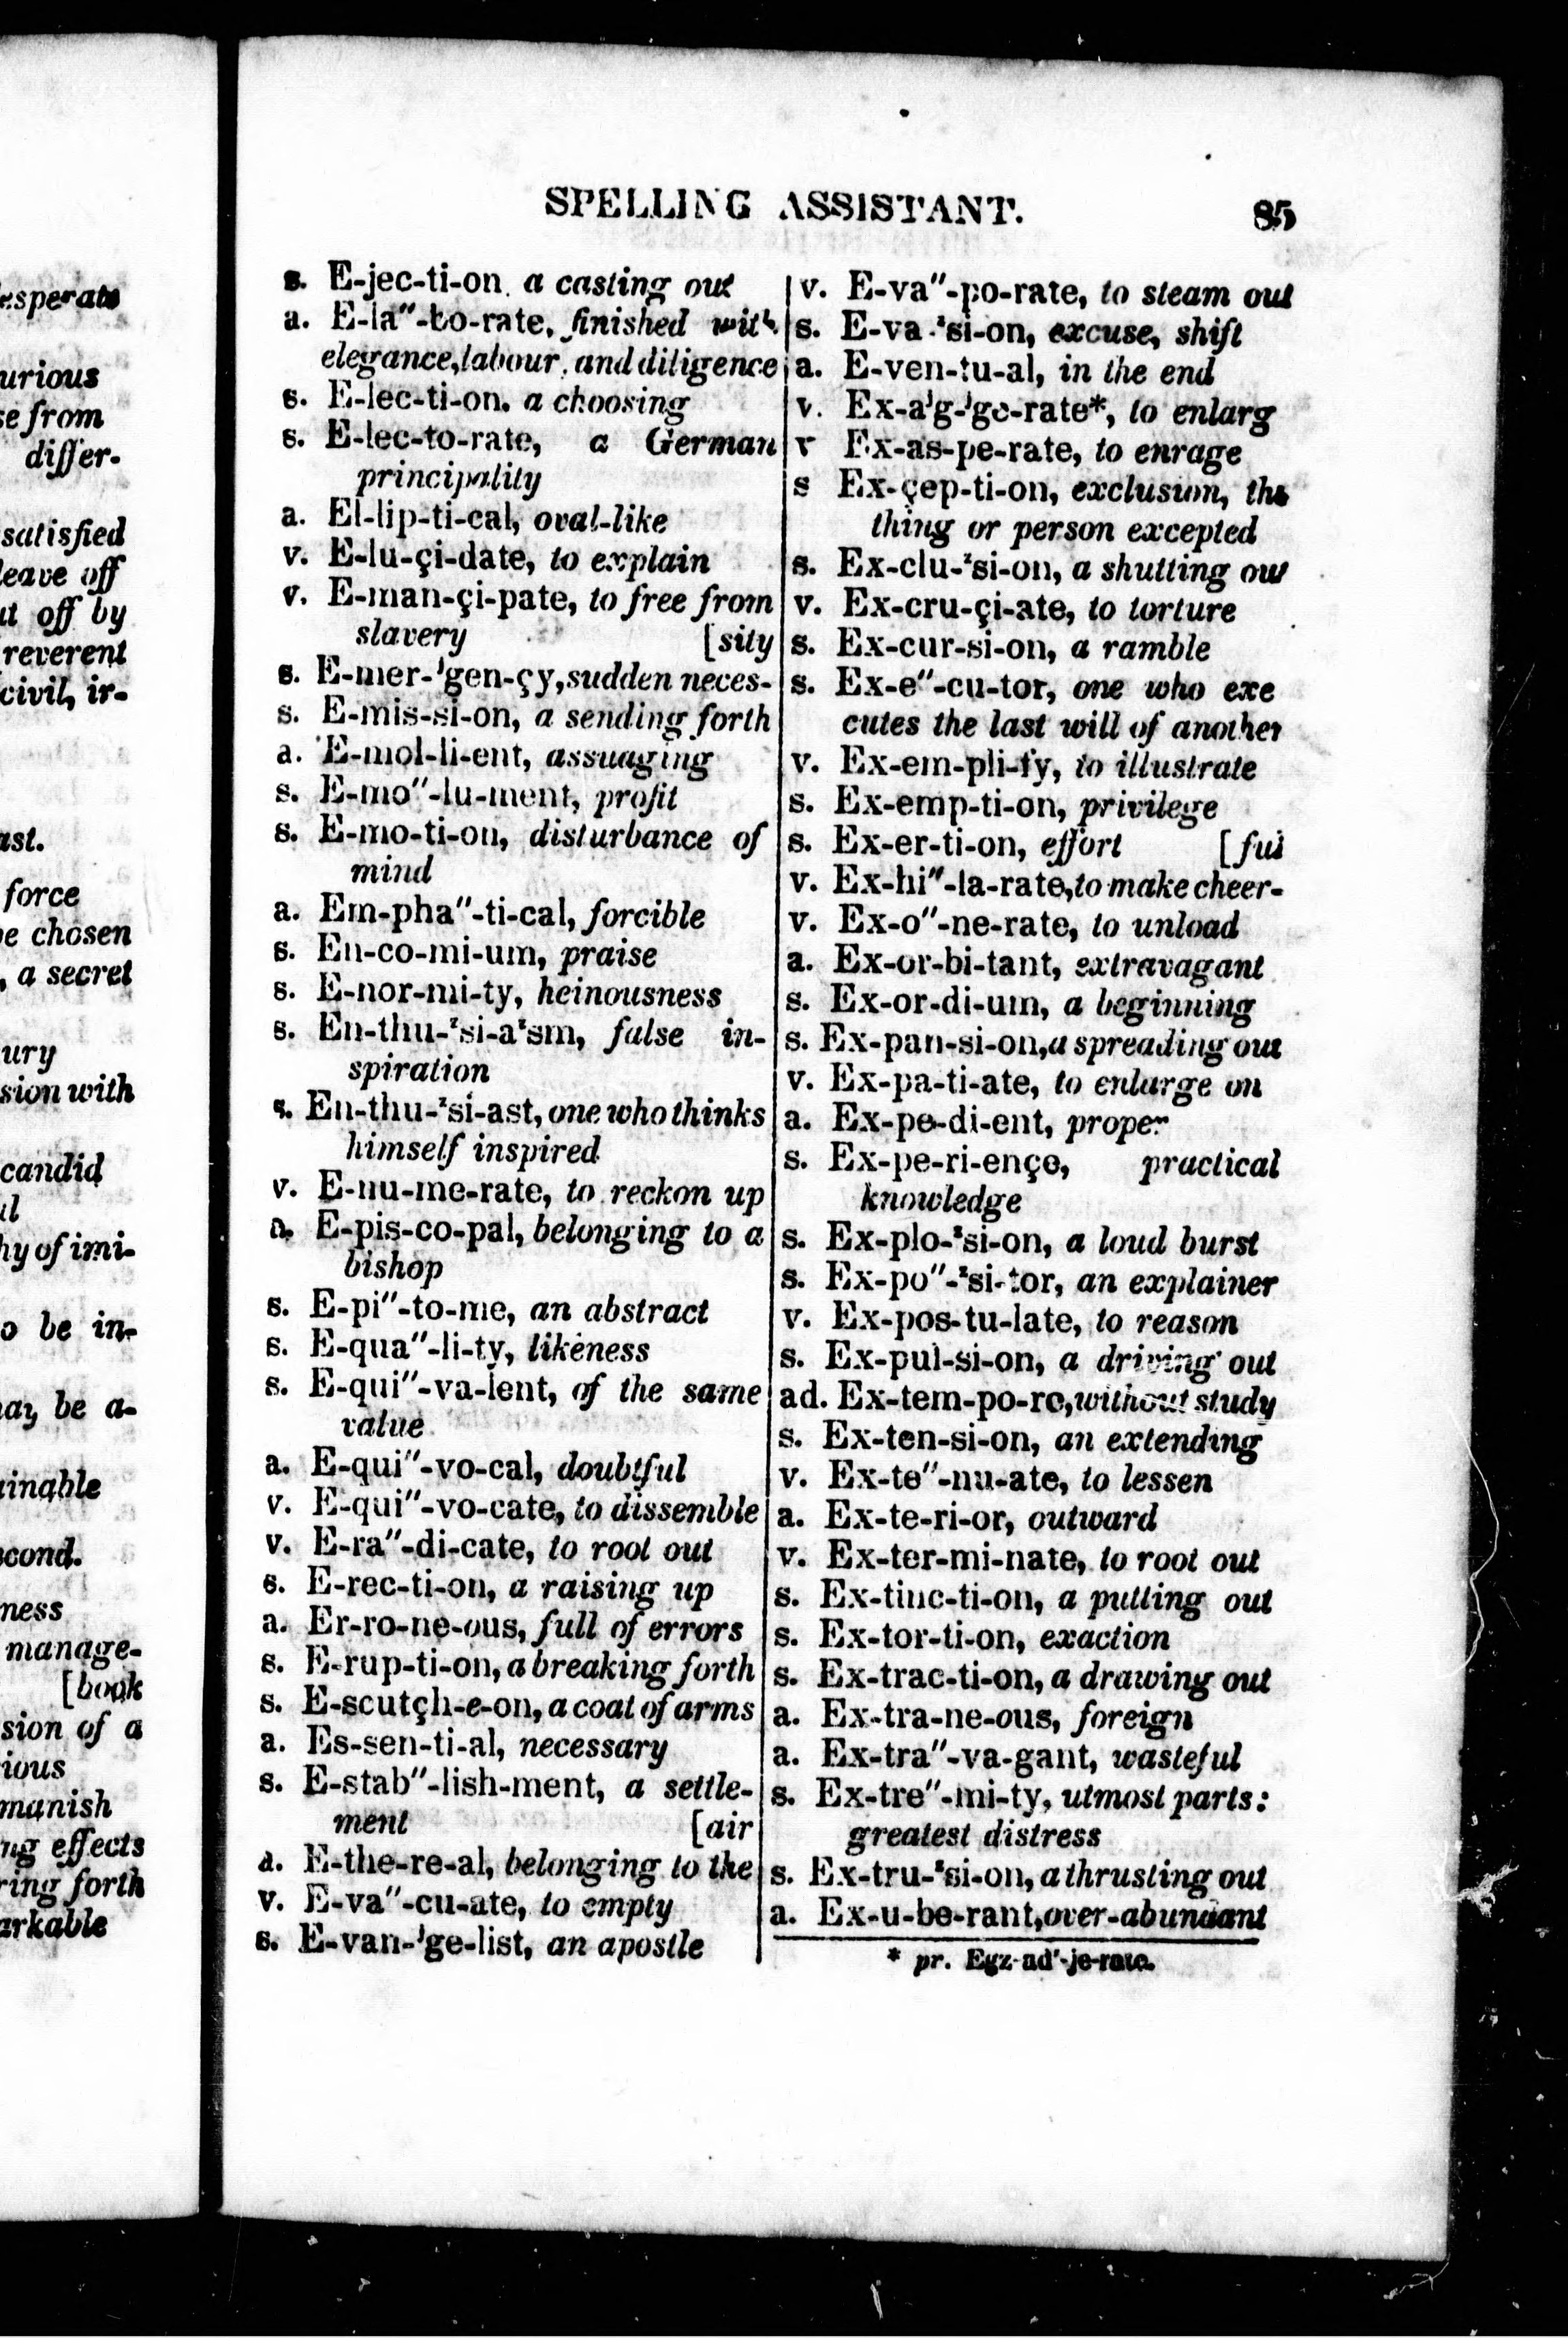 esperate
urious
se from
differ-
satisfied
leave off
ut off by
reverent
civil, ir-
ast.
force
be chosen
, a secret
ury
sion with
candid
ul
hy of imi-
o be in-
may be a-
ainable
econd.
ness
manage-
[book
sion of a
rious
manish
ng effects
ring forth
arkable
SPELLING ASSISTANT. 85
s. E-jec-ti-on, a casting out
a. E-la″-bo-rate, finished with
elegance, labour, and diligence
s. E-lec-ti-on, a choosing
s. E-lec-to-rate, a German
principality
a. El-lip-ti-cal, oval-like
v. E-lu-çi-date, to explain
v. E-man-çi-pate, to free from
slavery [sity
s. E-mer-ʲgen-çy, sudden neces-
s. E-mis-si-on, a sending forth
a. E-mol-li-ent, assuaging
s. E-mo″-lu-ment, profit
s. E-mo-ti-on, disturbance of
mind
a. Em-pha″-ti-cal, forcible
s. En-co-mi-um, praise
s. E-nor-mi-ty, heinousness
s. En-thu-ᶻsi-aᶻsm, false in-
spiration
s. En-thu-ᶻsi-ast, one who thinks
himself inspired
v. E-nu-me-rate, to reckon up
a. E-pis-co-pal, belonging to a
bishop
s. E-pi″-to-me, an abstract
s. E-qua″-li-ty, likeness
s. E-qui″-va-lent, of the same
value
a. E-qui″-vo-cal, doubtful
v. E-qui″-vo-cate, to dissemble
v. E-ra″-di-cate, to root out
s. E-rec-ti-on, a raising up
a. Er-ro-ne-ous, full of errors
s. E-rup-ti-on, a breaking forth
s. E-scutçh-e-on, a coat of arms
a. Es-sen-ti-al, necessary
s. E-stab″-lish-ment, a settle-
ment [air
a. E-the-re-al, belonging to the
v. E-va″-cu-ate, to empty
s. E-van-ʲge-list, an apostle
v. E-va″-po-rate, to steam out
s. E-va-ᶻsi-on, excuse, shift
a. E-ven-tu-al, in the end
v. Ex-aʲg-ʲge-rate*, to enlarg
v Ex-as-pe-rate, to enrage
s Ex-çep-ti-on, exclusion, the
thing or person excepted
s. Ex-clu-ᶻsi-on, a shutting out
v. Ex-cru-çi-ate, to torture
s. Ex-cur-si-on, a ramble
s. Ex-e″-cu-tor, one who exe
cutes the last will of another
v. Ex-em-pli-fy, to illustrate
s. Ex-emp-ti-on, privilege
s. Ex-er-ti-on, effort [ful
v. Ex-hi″-la-rate, to make cheer-
v. Ex-o″-ne-rate, to unload
a. Ex-or-bi-tant, extravagant
s. Ex-or-di-um, a beginning
s. Ex-pan-si-on, a spreading out
v. Ex-pa-ti-ate, to enlarge on
a. Ex-pe-di-ent, proper
s. Ex-pe-ri-ençe, practical
knowledge
s. Ex-plo-ᶻsi-on, a loud burst
s. Ex-po″-ᶻsi-tor, an explainer
v. Ex-pos-tu-late, to reason
s. Ex-pul-si-on, a driving out
ad. Ex-tem-po-re, without study
s. Ex-ten-si-on, an extending
v. Ex-te″-nu-ate, to lessen
a. Ex-te-ri-or, outward
v. Ex-ter-mi-nate, to root out
s. Ex-tinc-ti-on, a putting out
s. Ex-tor-ti-on, exaction
s. Ex-trac-ti-on, a drawing out
a. Ex-tra-ne-ous, foreign
a. Ex-tra″-va-gant, wasteful
s. Ex-tre″-mi-ty, utmost parts:
greatest distress
s. Ex-tru-ᶻsi-on, a thrusting out
a. Ex-u-be-rant, over-abundant
* pr. Egz-ad′-je-rate.